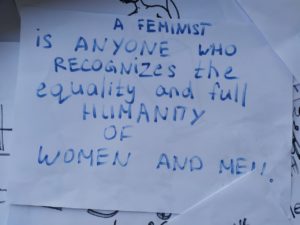 A FEMINIST
is ANYONE WHO
RECOGNIZES the
equality and full
HUMANITY
OF
WOMEN AND MEN.